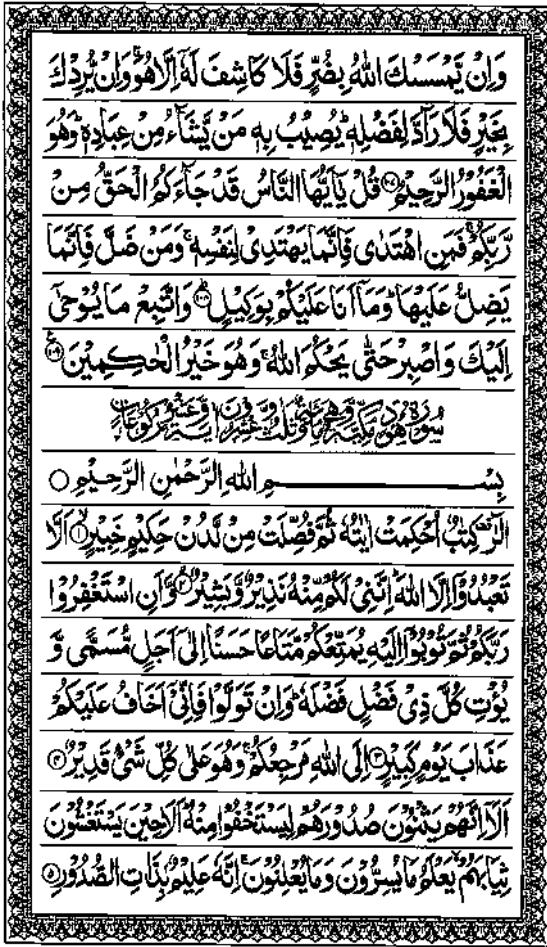 وَاِنْ يَّمْسَسْكَ اللّٰهُ بِضُرٍّ فَلَا كَاشِفَ لَهٗۤ اِلَّا هُوَ ۚ وَاِنْ يُّرِدْكَ
بِخَيْرٍ فَلَا رَآدَّ لِفَضْلِهٖ ؕ يُصِيْبُ بِهٖ مَنْ يَّشَآءُ مِنْ عِبَادِهٖ ؕ وَهُوَ
الْغَفُوْرُ الرَّحِيْمُ ﴿۱۰۷﴾ قُلْ يٰۤاَيُّهَا النَّاسُ قَدْ جَآءَكُمُ الْحَقُّ مِنْ
رَّبِّكُمْ ۚ فَمَنِ اهْتَدٰى فَاِنَّمَا يَهْتَدِىْ لِنَفْسِهٖ ۚ وَمَنْ ضَلَّ فَاِنَّمَا
يَضِلُّ عَلَيْهَا ؕ وَمَاۤ اَنَا عَلَيْكُمْ بِوَكِيْلٍ ﴿۱۰۸﴾ وَاتَّبِعْ مَا يُوْحٰۤى
اِلَيْكَ وَاصْبِرْ حَتّٰى يَحْكُمَ اللّٰهُ ۚ وَهُوَ خَيْرُ الْحٰكِمِيْنَ ﴿۱۰۹﴾
سُوْرَةُ هُوْدٍ مَكِّيَّةٌ وَّهِىَ مِائَةٌ وَّثَلٰثٌ وَّعِشْرُوْنَ اٰيَةً وَّعَشْرُ رُكُوْعَاتٍ
بِسْمِ اللّٰهِ الرَّحْمٰنِ الرَّحِيْمِ
الٓرٰ كِتٰبٌ اُحْكِمَتْ اٰيٰتُهٗ ثُمَّ فُصِّلَتْ مِنْ لَّدُنْ حَكِيْمٍ خَبِيْرٍ ﴿۱﴾ اَلَّا
تَعْبُدُوْۤا اِلَّا اللّٰهَ ؕ اِنَّنِىْ لَكُمْ مِّنْهُ نَذِيْرٌ وَّبَشِيْرٌ ﴿۲﴾ وَّاَنِ اسْتَغْفِرُوْا
رَبَّكُمْ ثُمَّ تُوْبُوْۤا اِلَيْهِ يُمَتِّعْكُمْ مَّتَاعًا حَسَنًا اِلٰۤى اَجَلٍ مُّسَمًّى وَّ
يُؤْتِ كُلَّ ذِىْ فَضْلٍ فَضْلَهٗ ؕ وَاِنْ تَوَلَّوْا فَاِنِّىْۤ اَخَافُ عَلَيْكُمْ
عَذَابَ يَوْمٍ كَبِيْرٍ ﴿۳﴾ اِلَى اللّٰهِ مَرْجِعُكُمْ ۚ وَهُوَ عَلٰى كُلِّ شَىْءٍ قَدِيْرٌ ﴿۴﴾
اَلَاۤ اِنَّهُمْ يَثْنُوْنَ صُدُوْرَهُمْ لِيَسْتَخْفُوْا مِنْهُ ؕ اَلَا حِيْنَ يَسْتَغْشُوْنَ
ثِيَابَهُمْ ۙ يَعْلَمُ مَا يُسِرُّوْنَ وَمَا يُعْلِنُوْنَ ۚ اِنَّهٗ عَلِيْمٌۢ بِذَاتِ الصُّدُوْرِ ﴿۵﴾